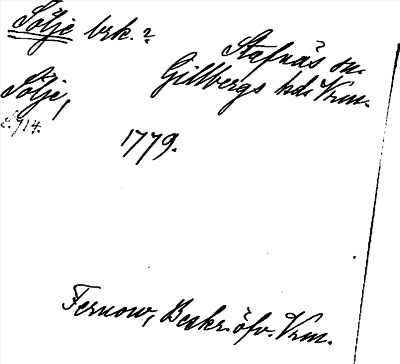 Sölje brk. 2
Stafnäs sn.
Gillbergs hd. Vrm.
Sölje,
s. 914.
1779.
Fernow, Beskr. öfv. Vrm.